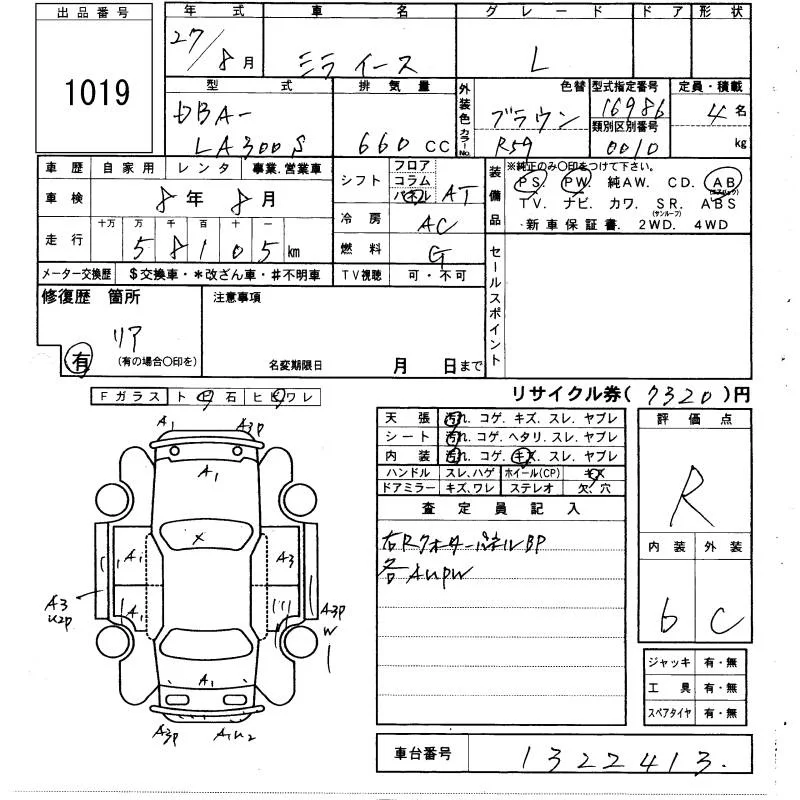 出品番号
1019
年式 車名 グレード ドア 形状
27/8月 ミライース L
型式 排気量 外装色 カラーNo. 色替 型式指定番号 定員・積載
DBA-LA300S 660CC ブラウン R59 16986 4名
類別区別番号
0010 kg
車歴 自家用 レンタ 事業.営業車
車検 8年8月
走行 十万 万 千 百 十 一
58105km
メーター交換歴 $交換車・*改ざん車・#不明車
シフト フロア コラム パネル AT
冷房 AC
燃料 G
TV視聴 可・不可
装備品 ※純正のみ〇印をつけて下さい。
PS. PW. 純AW. CD. AB(エアバック)
TV. ナビ. カワ. SR.(サンルーフ) ABS
新車保証書. 2WD. 4WD
セールスポイント
修復歴 箇所
リア
有 (有の場合〇印を)
注意事項
名変期限日 月 日まで
リサイクル券(7320)円
Fガラス ト ビ 石 ヒ ビ ワレ
天張 汚れ. コゲ. キズ. スレ. ヤブレ
シート 汚れ. コゲ. ヘタリ. スレ. ヤブレ
内装 汚れ. コゲ. キズ. スレ. ヤブレ
ハンドル スレ、ハゲ ホイール(CP) キズ
ドアミラー キズ、ワレ ステレオ 欠、穴
査定員記入
右Rクォーターパネル BP
各AUPW
評価点
R
内装 外装
6 C
ジャッキ 有・無
工具 有・無
スペアタイヤ 有・無
A1 A3P
A1
X
A1 A3
A1
A3 U2P
A3P W
A1
A3P A1U2
車台番号 1322413.